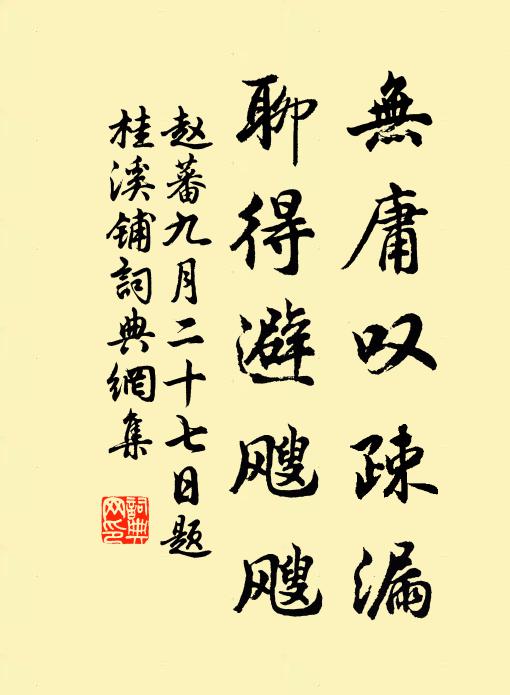 無庸叹疎漏
聊得避飕飕
赵蕃九月二十七日题
桂溪铺詞典網集
詞典
网印